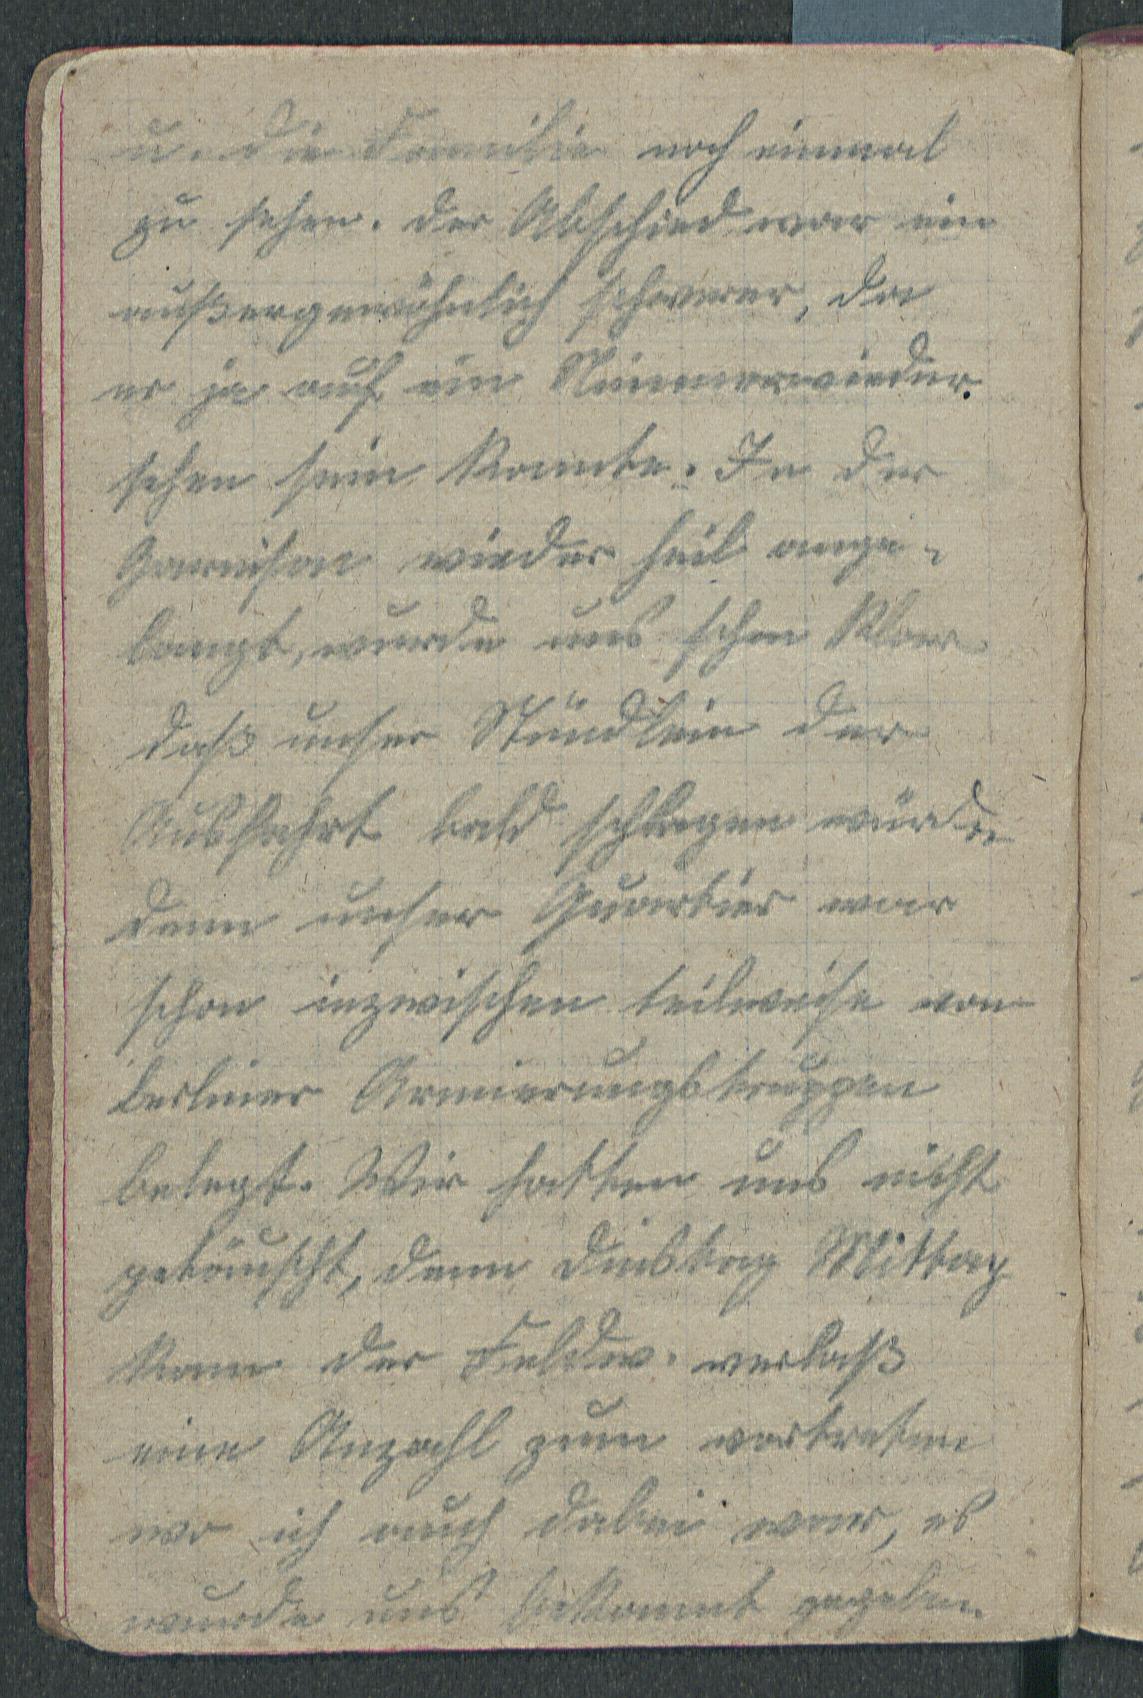 u. die Familie noch einmal
zu sehen. Der Abschied war ein
außergewöhnlich schwerer, da
er ja auf ein Nimmerwieder
sehen sein konnte. In der
Garnison wieder heil ange-
langt, wurde uns schon klar
daß unser Stündlein der
Ausfahrt bald schlagen würde
denn unser Quartier war
schon inzwischen teilweise von
berliner Armierungstruppen
belegt. Wir hatten uns nicht
getäuscht, denn Dinstag Mittag
kam der Feldw. verlaß
eine Anzahl zum vortreten
wo ich auch dabei war, es
wurde uns bekannt gegeben